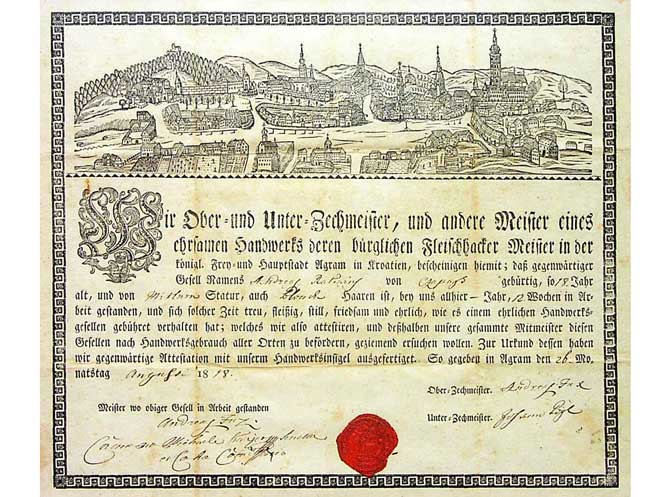 Wir Ober- und Unter-Zechmeister, und andere Meister eines
ehrsamen Handwerks deren bürglichen Fleischhacker Meister in der
königl. Frey- und Hauptstadt Agram in Kroatien, bescheinigen hiemit; daß gegenwärtiger
Gesell Namens Andreas von gebürtig, so 18 Jahr
alt, und von Mittern Statur, auch blond Haaren ist, bey uns allhier — Jahr, 12 Wochen in Ar-
beit gestanden, und sich solcher Zeit treu, fleißig, still, friedsam und ehrlich, wie es einem ehrlichen Handwerks-
gesellen gebühret verhalten hat; welches wir also attestiren, und deßhalben unsere gesammte Mitmeister diesen
Gesellen nach Handwerksgebrauch aller Orten zu befördern, geziemend ersuchen wollen. Zur Urkund dessen haben
wir gegenwärtige Attestation mit unserm Handwerksinsigel ausgefertiget. So gegeben in Agram den 26. Mo-
natstag August 1818.
Ober-Zechmeister. Andreas
Meister wo obiger Gesell in Arbeit gestanden
Unter-Zechmeister. Johann
Andreas